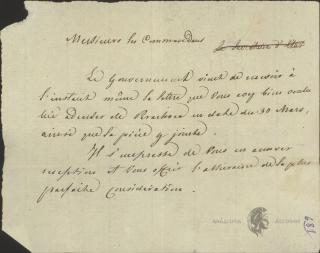 Messieurs les Commandans
Le Gouvernement vient de recevoir à
l'instant même la lettre que vous avez bien voulu
lui adresser de en date du 30 Mars,
ainsi que la pièce y jointe.
Il s'empresse de Vous en accuser
reception et Vous offrir l'assurance de la plus
parfaite consideration.
189